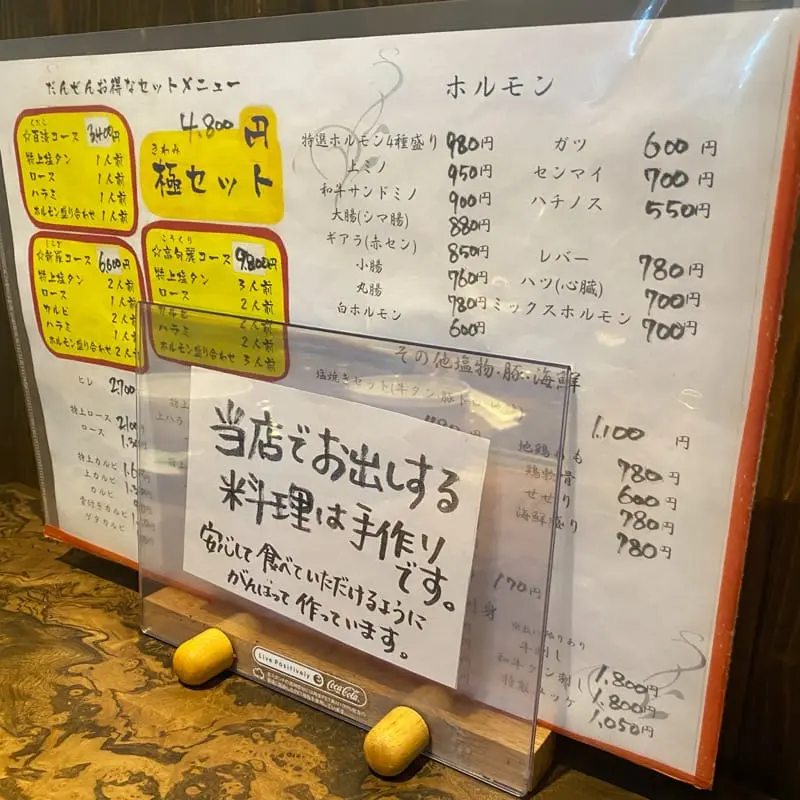 だんぜんお得なセットメニュー
くだら
☆百済コース 3,400円
特上塩タン 1人前
ロース 1人前
ハラミ 1人前
ホルモン盛り合わせ 1人前
4,800円
きわみ
極セット
しらぎ
☆新羅コース 6,600円
特上塩タン 2人前
ロース 1人前
カルビ 2人前
ハラミ 1人前
ホルモン盛り合わせ 2人前
こうくり
☆高句麗コース 9,800円
特上塩タン 3人前
ロース 2人前
カルビ 2人前
ハラミ 2人前
ホルモン盛り合わせ 3人前
ヒレ 2,700
特上ロース
ロース
特上カルビ
上カルビ
カルビ
骨付きカルビ
ゲタカルビ
ホルモン
特選ホルモン4種盛り 980円
上ミノ 950円
和牛サンドミノ 900円
大腸(シマ腸) 880円
ギアラ(赤セン) 850円
小腸 760円
丸腸 780円
白ホルモン 600円
ガツ 600円
センマイ 700円
ハチノス 550円
レバー 780円
ハツ(心臓) 700円
ミックスホルモン 700円
その他塩物・豚・海鮮
塩焼きセット(牛タン
1,100円
地鶏もも 780円
鶏軟骨 600円
せせり 780円
海鮮盛り 780円
170円
牛刺し 1,800円
和牛タン刺し 1,800円
特製ユッケ 1,050円
当店でお出しする
料理は手作り
です。
安心して食べていただけるように
がんばって作っています。
Live Positively
Coca-Cola